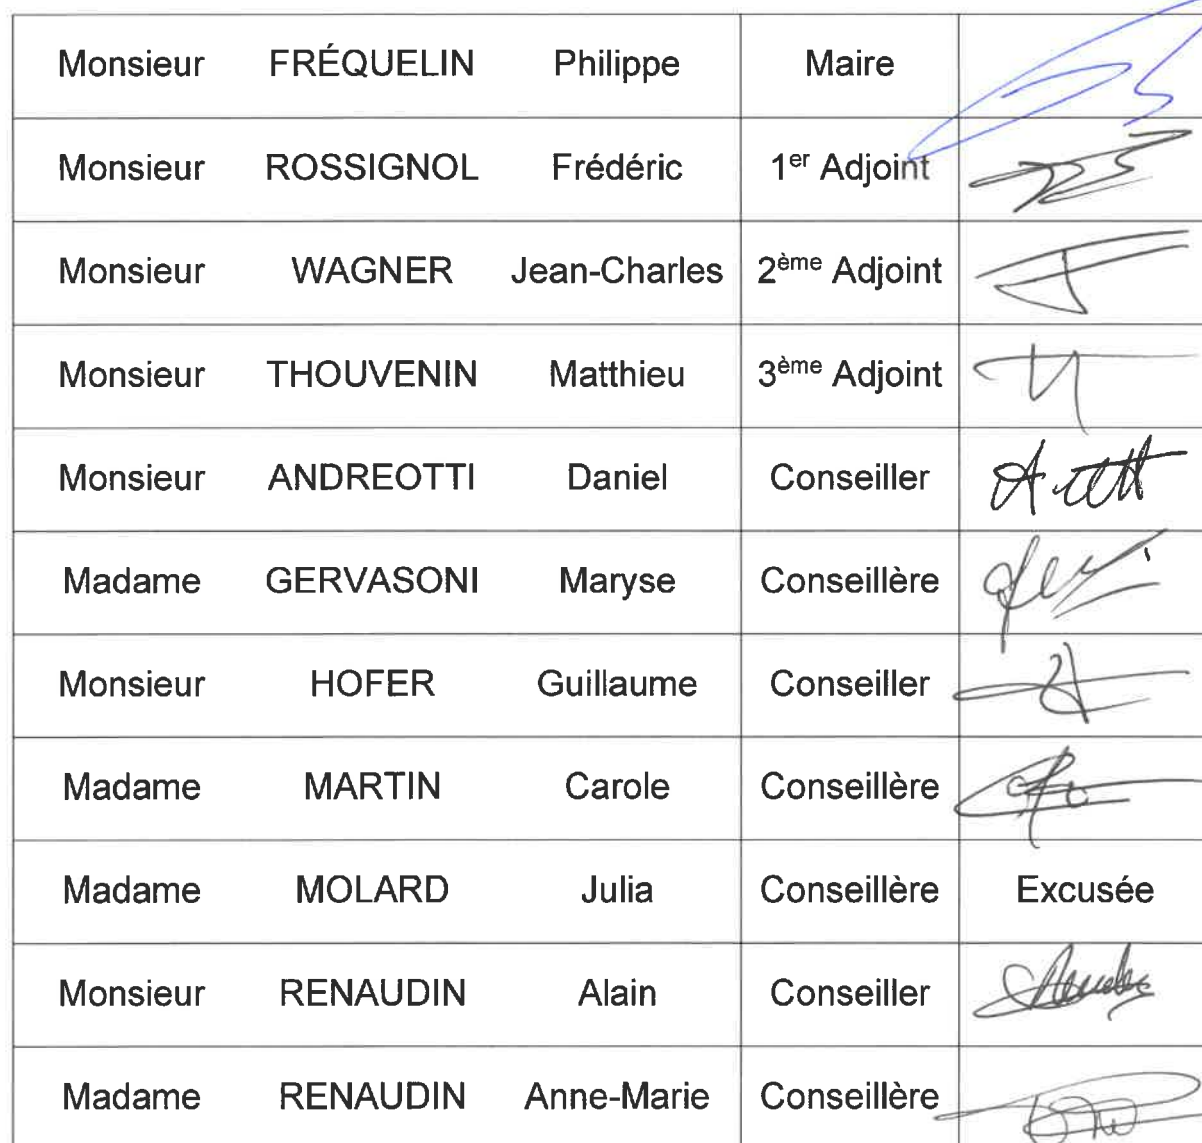 Monsieur FRÉQUELIN Philippe Maire
Monsieur ROSSIGNOL Frédéric 1er Adjoint
Monsieur WAGNER Jean-Charles 2ème Adjoint
Monsieur THOUVENIN Matthieu 3ème Adjoint
Monsieur ANDREOTTI Daniel Conseiller
Madame GERVASONI Maryse Conseillère
Monsieur HOFER Guillaume Conseiller
Madame MARTIN Carole Conseillère
Madame MOLARD Julia Conseillère Excusée
Monsieur RENAUDIN Alain Conseiller
Madame RENAUDIN Anne-Marie Conseillère